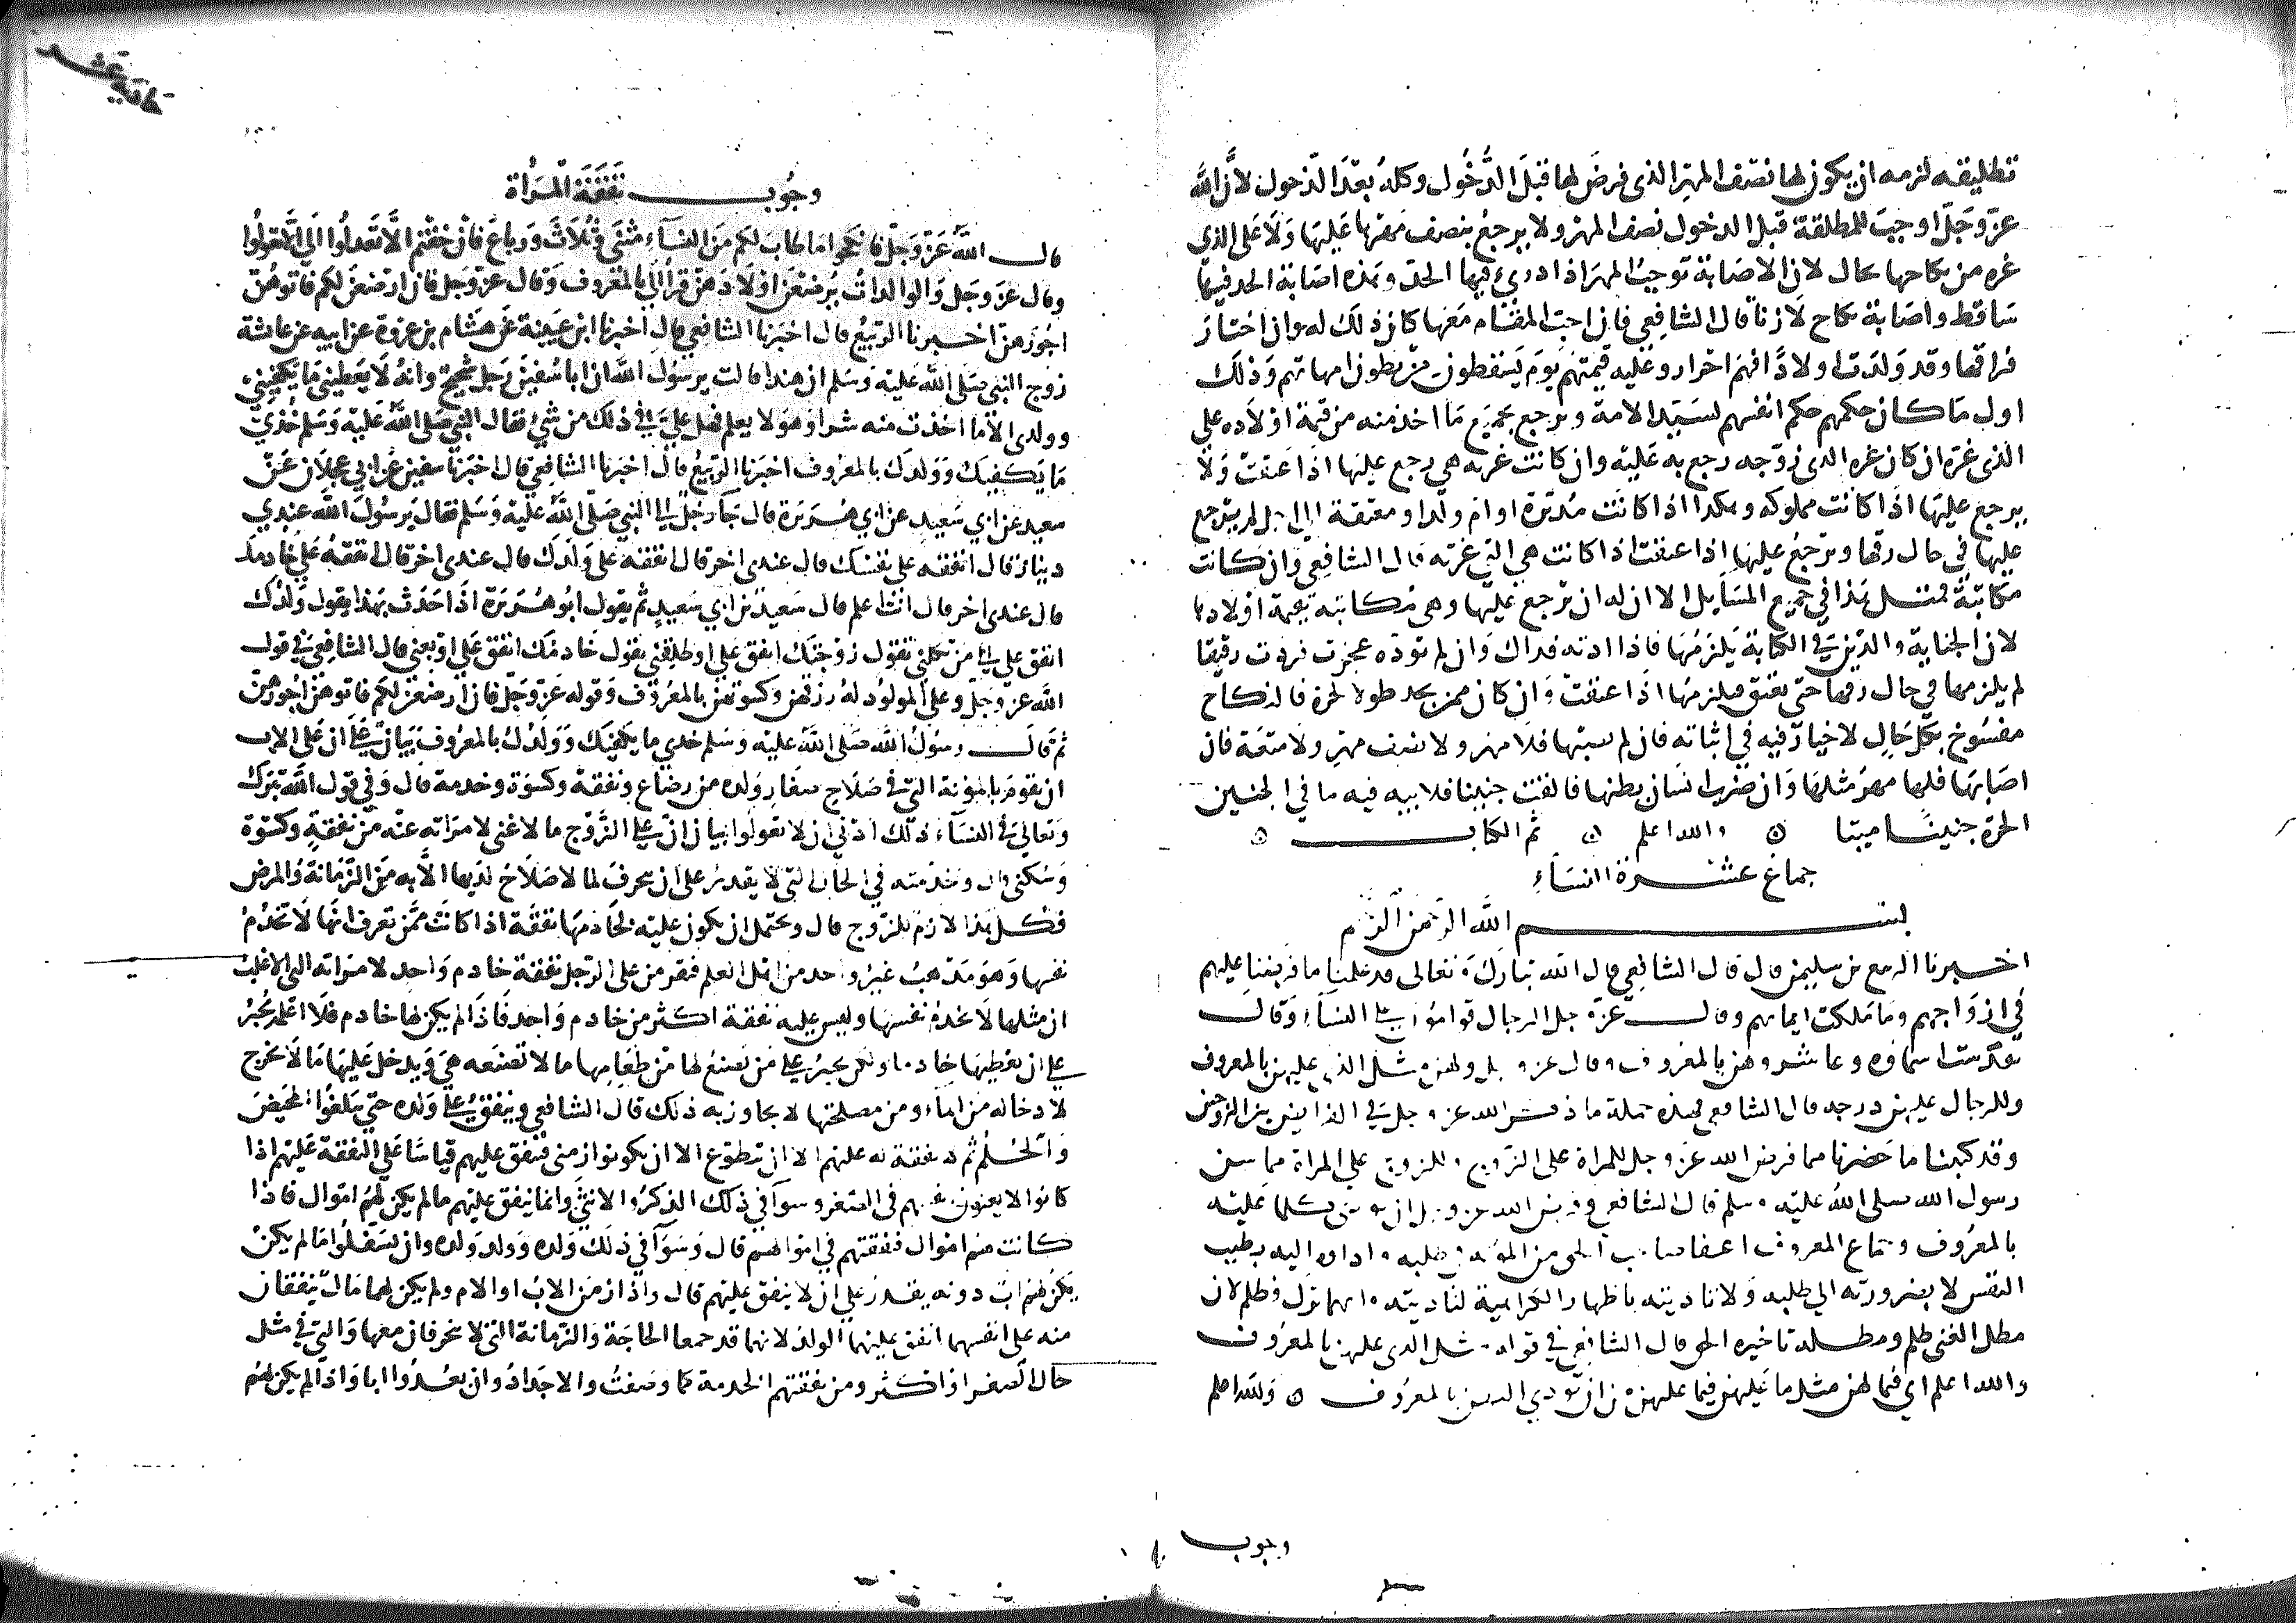 تطليقه لزمه ان يكون لها نصف المهر الذى فرض لها قبل الدخول وكله بعد الدخول لان الله
عز وجل اوجب للمطلقة قبل الدخول نصف المهر ولا يرجع بنصف مهرها عليها ولا على الذي
غره من نكاحها بحال لان الاصابة توجب المهر اذا ادرئ فيها الحد وهذه اصابة الحد فيها
ساقط واصابة نكاح لا زنا قال الشافعي فان احب المقام معها كان ذلك له وان اختار
فراقها وقد ولدت اولادا فهم احرار وعليه قيمتهم يوم يسقطون من بطون امهاتهم وذلك
اول ما كان حكمهم حكم انفسهم لسيد الامة ويرجع بجميع ما اخذ منه من قيمة اولاده على
الذى غره ان كان غره الذى زوجه رجع به عليه وان كانت غرته هي رجع عليها اذا عتقت ولا
يرجع عليها اذا كانت مملوكه وهكذا اذا كانت مدبرة او ام ولد او معتقة الى اجل لم يرجع
عليها في حال رقها ويرجع عليها اذا عتقت اذا كانت هي التي غرته قال الشافعي وان كانت
مكاتبة فمثل هذا في جميع المسايل الا ان له ان يرجع عليها وهي مكاتبة بقيمة اولادها
لان الجناية والدين في الكتابة يلزمها فاذا ادته فذاك وان لم توده عجزت فردت رقيقا
لم يلزمها في حال رقها حتى تعتق فيلزمها اذا عتقت وان كان ممن يجد طولا لحرة فالنكاح
مفسوخ بكل حال لا خيار فيه في اثباته فان لم يصبها فلا مهر ولا نصف مهر ولا متعة فان
اصابها فلها مهر مثلها وان ضرب انسان بطنها فالقت جنينا فلابيه فيه ما في الجنين
الحرة جنينا ميتا والله اعلم تم الكتاب
جماع عشرة النساء
بسم الله الرحمن الرحيم
اخبرنا الربيع بن سليمن قال قال الشافعي قال الله تبارك وتعالى قد علمنا ما فرضنا عليهم
في ازواجهم وما ملكت ايمانهم وقال عز وجل الرجال قوامون على النساء وقال
تقدست اسماوه وعاشروهن بالمعروف وقال عز وجل ولهن مثل الذى عليهن بالمعروف
وللرجال عليهن درجه قال الشافعي هذه جملة ما ذكر الله عز وجل في الفرايض بين الزوجين
وقد كتبنا ما حضرنا مما فرض الله عز وجل للمراة على الزوج وللزوج على المراة مما سن
رسول الله صلى الله عليه وسلم قال الشافعي وفرض الله عز وجل ان يودى كل ما عليه
بالمعروف وجماع المعروف اعفا صاحب الحق من المؤنة في طلبه واداوه اليه بطيب
النفس لا بضرورته الى طلبه ولا تاديته باظهار الكراهية لتاديته وايهما ترك فظلم لان
مطل الغنى ظلم ومطله تاخيره الحق قال الشافعي في قوله مثل الذى عليهن بالمعروف
والله اعلم اي فما لهن مثل ما عليهن فيما عليهن من ان يودي اليهن بالمعروف والله اعلم
وجوب
وجوب نفقة المراة
قال الله عز وجل فانكحوا ما طاب لكم من النساء مثنى وثلاث ورباع فان خفتم الا تعدلوا الى الا تعولوا
وقال عز وجل والوالدات يرضعن اولادهن قرا الى بالمعروف وقال عز وجل فان ارضعن لكم فاتوهن
اجورهن اخبرنا الربيع قال اخبرنا الشافعي قال اخبرنا ابن عيينة عن هشام بن عروة عن ابيه عن عائشة
زوج النبي صلى الله عليه وسلم ان هندا قالت يرسول الله ان ابا سفين رجل شحيح وانه لا يعطيني ما يكفيني
وولدى الا ما اخذت منه سرا وهو لا يعلم فهل علي في ذلك من شئ فقال النبي صلى الله عليه وسلم خذي
ما يكفيك وولدك بالمعروف اخبرنا الربيع قال اخبرنا الشافعي قال اخبرنا سفين عن ابي عجلان عن
سعيد عن ابي سعيد عن ابي هريرة قال جا رجل الى النبي صلى الله عليه وسلم فقال يرسول الله عندي
دينار قال انفقه على نفسك قال عندى اخر قال انفقه على ولدك قال عندى اخر قال انفقه على خادمك
قال عندى اخر قال انت اعلم قال سعيد بن ابي سعيد ثم يقول ابو هريرة اذا حدث بهذا يقول ولدك
انفق علي الى من تكلني تقول زوجتك انفق علي او طلقني يقول خادمك انفق علي او بعني قال الشافعي في قول
الله عز وجل وعلى المولود له رزقهن وكسوتهن بالمعروف وقوله عز وجل فان ارضعن لكم فاتوهن اجورهن
ثم قال رسول الله صلى الله عليه وسلم خدي ما يكفيك وولدك بالمعروف بيان على ان على الاب
ان يقوم بالمؤنة التي في صلاح صغار ولده من رضاع ونفقة وكسوة وخدمة قال وفي قول الله تبرك
وتعالى في النساء ذلك ادنى ان لا تعولوا بيان ان على الزوج ما لا غنى لامراته عنه من نفقة وكسوة
وسكنى قال وخدمته في الحال التي لا يقدر على ان ينحرف لما لا صلاح لبدنها الا به من الزمانة والمرض
فكل هذا لازم للزوج قال ويحتمل ان يكون عليه لخادمها نفقة اذا كانت ممن تعرف انها لا تخدم
نفسها وهو مذهب غير واحد من اهل العلم فيفرض على الرجل نفقة خادم واحد لامراته التي الاغلب
ان مثلها لا تخدم نفسها وليس عليه نفقة اكثر من خادم واحد فاذا لم يكن لها خادم فلا اعلمه يجبر
على ان يعطيها خادما ولكن يجبر على من يصنع لها من طعامها ما لا تصنعه هي ويدخل عليها ما لا تخرج
لادخاله من الماء ومن مصلحتها لا يجاوز به ذلك قال الشافعي وينفق على ولده حتى يبلغوا المحيض
والحلم ثم لا نفقة له عليهم الا ان يتطوع الا ان يكونوا زمنى فينفق عليهم قياسا على النفقة عليهم اذا
كانوا لا يغنون انفسهم في الصغر وسوآ في ذلك الذكر والانثى وانما ينفق عليهم ما لم يكن لهم اموال فاذا
كانت لهم اموال فنفقتهم في اموالهم قال وسوآ في ذلك ولده وولد ولده وان سفلوا ما لم يكن
يكن لهم اب دونه يقدر على ان لا ينفق عليهم قال واذا زمن الاب او الام ولم يكن لهما مال ينفقان
منه على انفسهما انفق عليهما الولد لانهما قد جمعا الحاجة والزمانة التي لا ينحرفان معها والتي في مثل
حال الصغر او اكثر ومن نفقتهم الخدمة كما وصفت والاجداد وان بعدوا ابا واذا لم يكن لهم